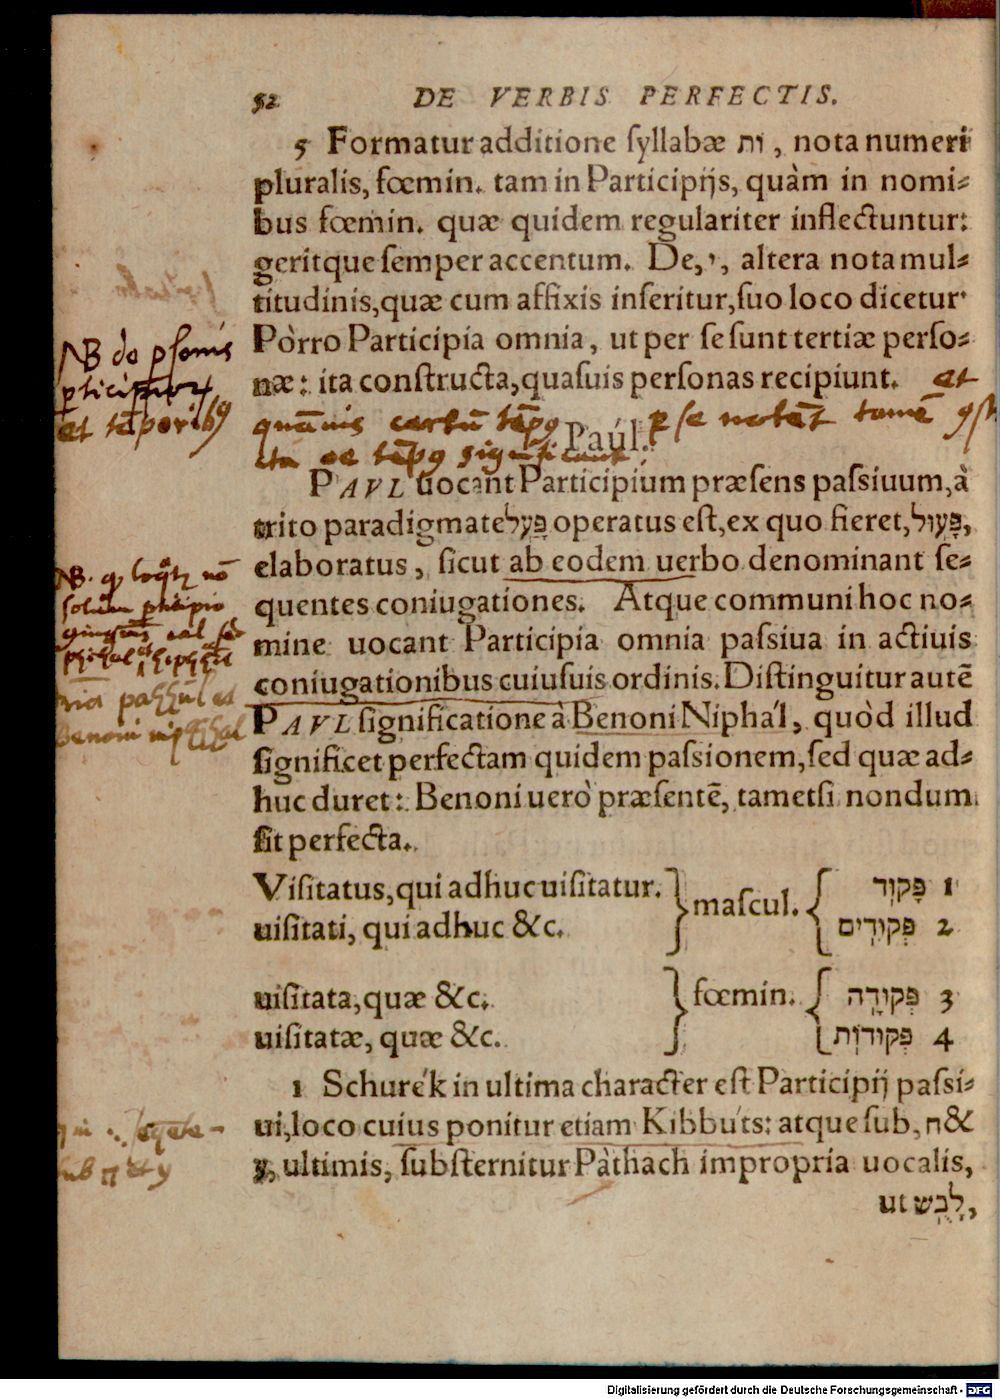 52 DE VERBIS PERFECTIS.
5 Formatur additione syllabæ ות, nota numeri
pluralis, fœmin. tam in Participijs, quàm in nomi-
bus fœmin. quæ quidem regulariter inflectuntur:
geritque semper accentum. De, י, altera nota mul-
titudinis, quæ cum affixis inseritur, suo loco dicetur
Pòrro Participia omnia, ut per se sunt tertiæ perso-
næ: ita constructa, quasuis personas recipiunt. et
NB de psonis
pticipior
et tēporib9
quāuis certū tēp9 p se notēt tamē
ita oe tēp9 significant.
Paúl.
PAVL uocant Participium præsens passiuum, à
trito paradigmate פָּעַל operatus est, ex quo fieret, פָּעוּל,
elaboratus, sicut ab eodem uerbo denominant se-
quentes coniugationes. Atque communi hoc no-
mine uocant Participia omnia passiua in actiuis
coniugationibus cuiusuis ordinis. Distinguitur autē
PAVL significatione à Benoni Niphál, quòd illud
significet perfectam quidem passionem, sed quæ ad-
huc duret: Benoni uerò præsentē, tametsi nondum
sit perfecta.
NB.
Visitatus, qui adhuc uisitatur. } mascul. { פָּקוּד 1
uisitati, qui adhuc &c. פְּקוּדִים 2
uisitata, quæ &c. } fœmin. { פְּקוּדָה 3
uisitatæ, quæ &c. פְּקוּדוֹת 4
1 Schurék in ultima character est Participij passi-
ui, loco cuius ponitur etiam Kibbúts: atque sub, ח &
ע, ultimis, substernitur Pàthach impropria uocalis,
ut לָבֻשׁ,
sub ח et ע
Digitalisierung gefördert durch die Deutsche Forschungsgemeinschaft - DFG